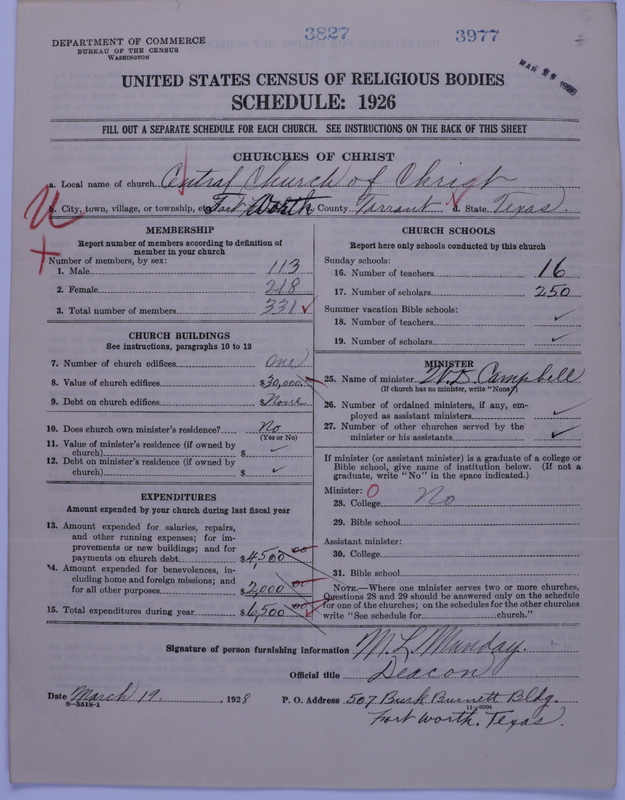 3827
3977
DEPARTMENT OF COMMERCE
BUREAU OF THE CENSUS
WASHINGTON
UNITED STATES CENSUS OF RELIGIOUS BODIES
SCHEDULE: 1926
FILL OUT A SEPARATE SCHEDULE FOR EACH CHURCH. SEE INSTRUCTIONS ON THE BACK OF THIS SHEET
CHURCHES OF CHRIST
a. Local name of church Central Church of Christ
b. City, town, village, or township, etc. Fort Worth c. County Tarrant d. State Texas.
MEMBERSHIP
Report number of members according to definition of
member in your church
Number of members, by sex:
1. Male 113
2. Female 218
3. Total number of members 331 ✓
CHURCH BUILDINGS
See instructions, paragraphs 10 to 12
7. Number of church edifices One
8. Value of church edifices $30,000.
9. Debt on church edifices $None
10. Does church own minister's residence? No
(Yes or No)
11. Value of minister's residence (if owned by
church) $ ✓
12. Debt on minister's residence (if owned by
church) $ ✓
EXPENDITURES
Amount expended by your church during last fiscal year
13. Amount expended for salaries, repairs,
and other running expenses; for im-
provements or new buildings; and for
payments on church debt $4,500 00
14. Amount expended for benevolences, in-
cluding home and foreign missions; and
for all other purposes $2,000 00
15. Total expenditures during year $6,500 00
CHURCH SCHOOLS
Report here only schools conducted by this church
Sunday schools:
16. Number of teachers 16
17. Number of scholars 250
Summer vacation Bible schools:
18. Number of teachers ✓
19. Number of scholars ✓
MINISTER
25. Name of minister Campbell
(If church has no minister, write "None")
26. Number of ordained ministers, if any, em-
ployed as assistant ministers ✓
27. Number of other churches served by the
minister or his assistants ✓
If minister (or assistant minister) is a graduate of a college or
Bible school, give name of institution below. (If not a
graduate, write "No" in the space indicated.)
Minister: 0
28. College No
29. Bible school
Assistant minister:
30. College
31. Bible school
NOTE.—Where one minister serves two or more churches,
Questions 28 and 29 should be answered only on the schedule
for one of the churches; on the schedules for the other churches
write "See schedule for church."
Signature of person furnishing information M. L. Munday.
Official title Deacon
Date March 19. , 1928 P. O. Address 507 Burk Burnett Bldg.
8-5518-1
Fort Worth, Texas.